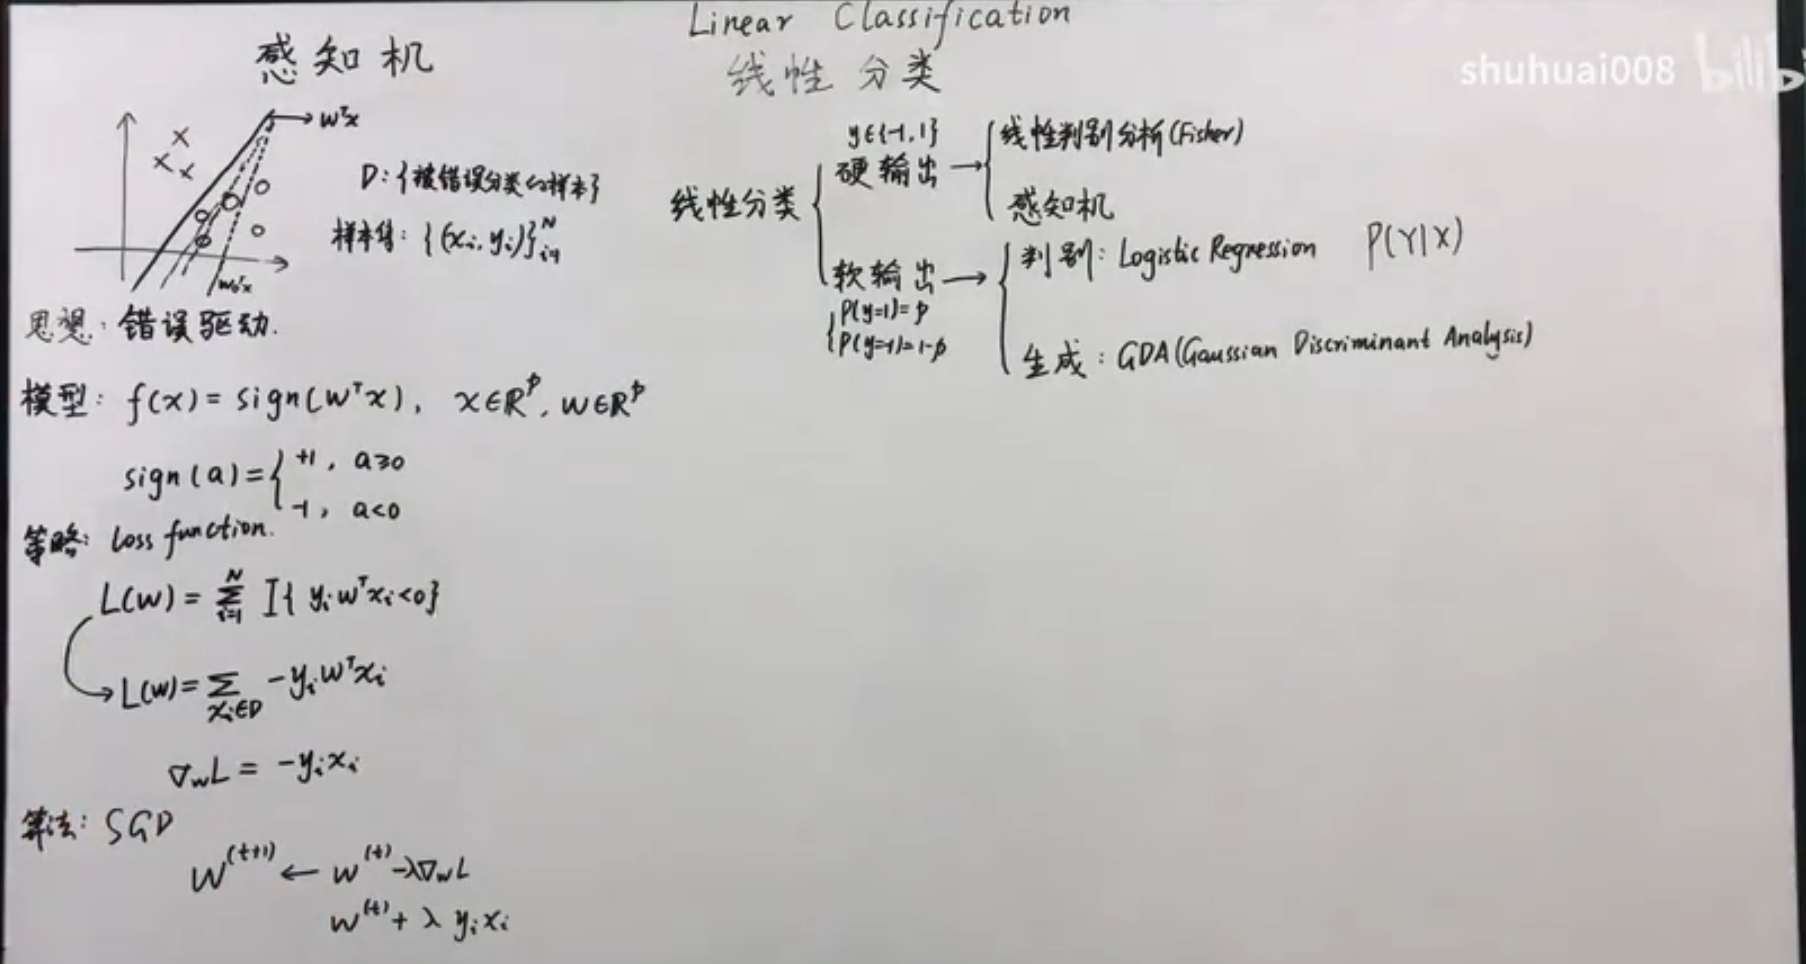 Linear Classification
线性分类
shuhuai008 bilibi
感知机
wᵀx
w₀ᵀx
D:{被错误分类的样本}
样本集: {(xᵢ, yᵢ)}ᵢ₌₁ᴺ
思想: 错误驱动.
模型: f(x) = sign(wᵀx), x∈ℝᵖ, w∈ℝᵖ
sign(a) = { +1, a≥0
-1, a<0
策略: loss function.
L(w) = ∑ᵢ₌₁ᴺ I{ yᵢwᵀxᵢ<0}
→ L(w) = ∑_{xᵢ∈D} -yᵢwᵀxᵢ
∇wL = -yᵢxᵢ
算法: SGD
w⁽ᵗ⁺¹⁾ ← w⁽ᵗ⁾-λ∇wL
w⁽ᵗ⁾+ λ yᵢxᵢ
线性分类
y∈{-1,1}
硬输出 →
线性判别分析(Fisher)
感知机
软输出 →
P(y=1)=p
P(y=-1)=1-p
判别: Logistic Regression P(Y|X)
生成: GDA(Gaussian Discriminant Analysis)